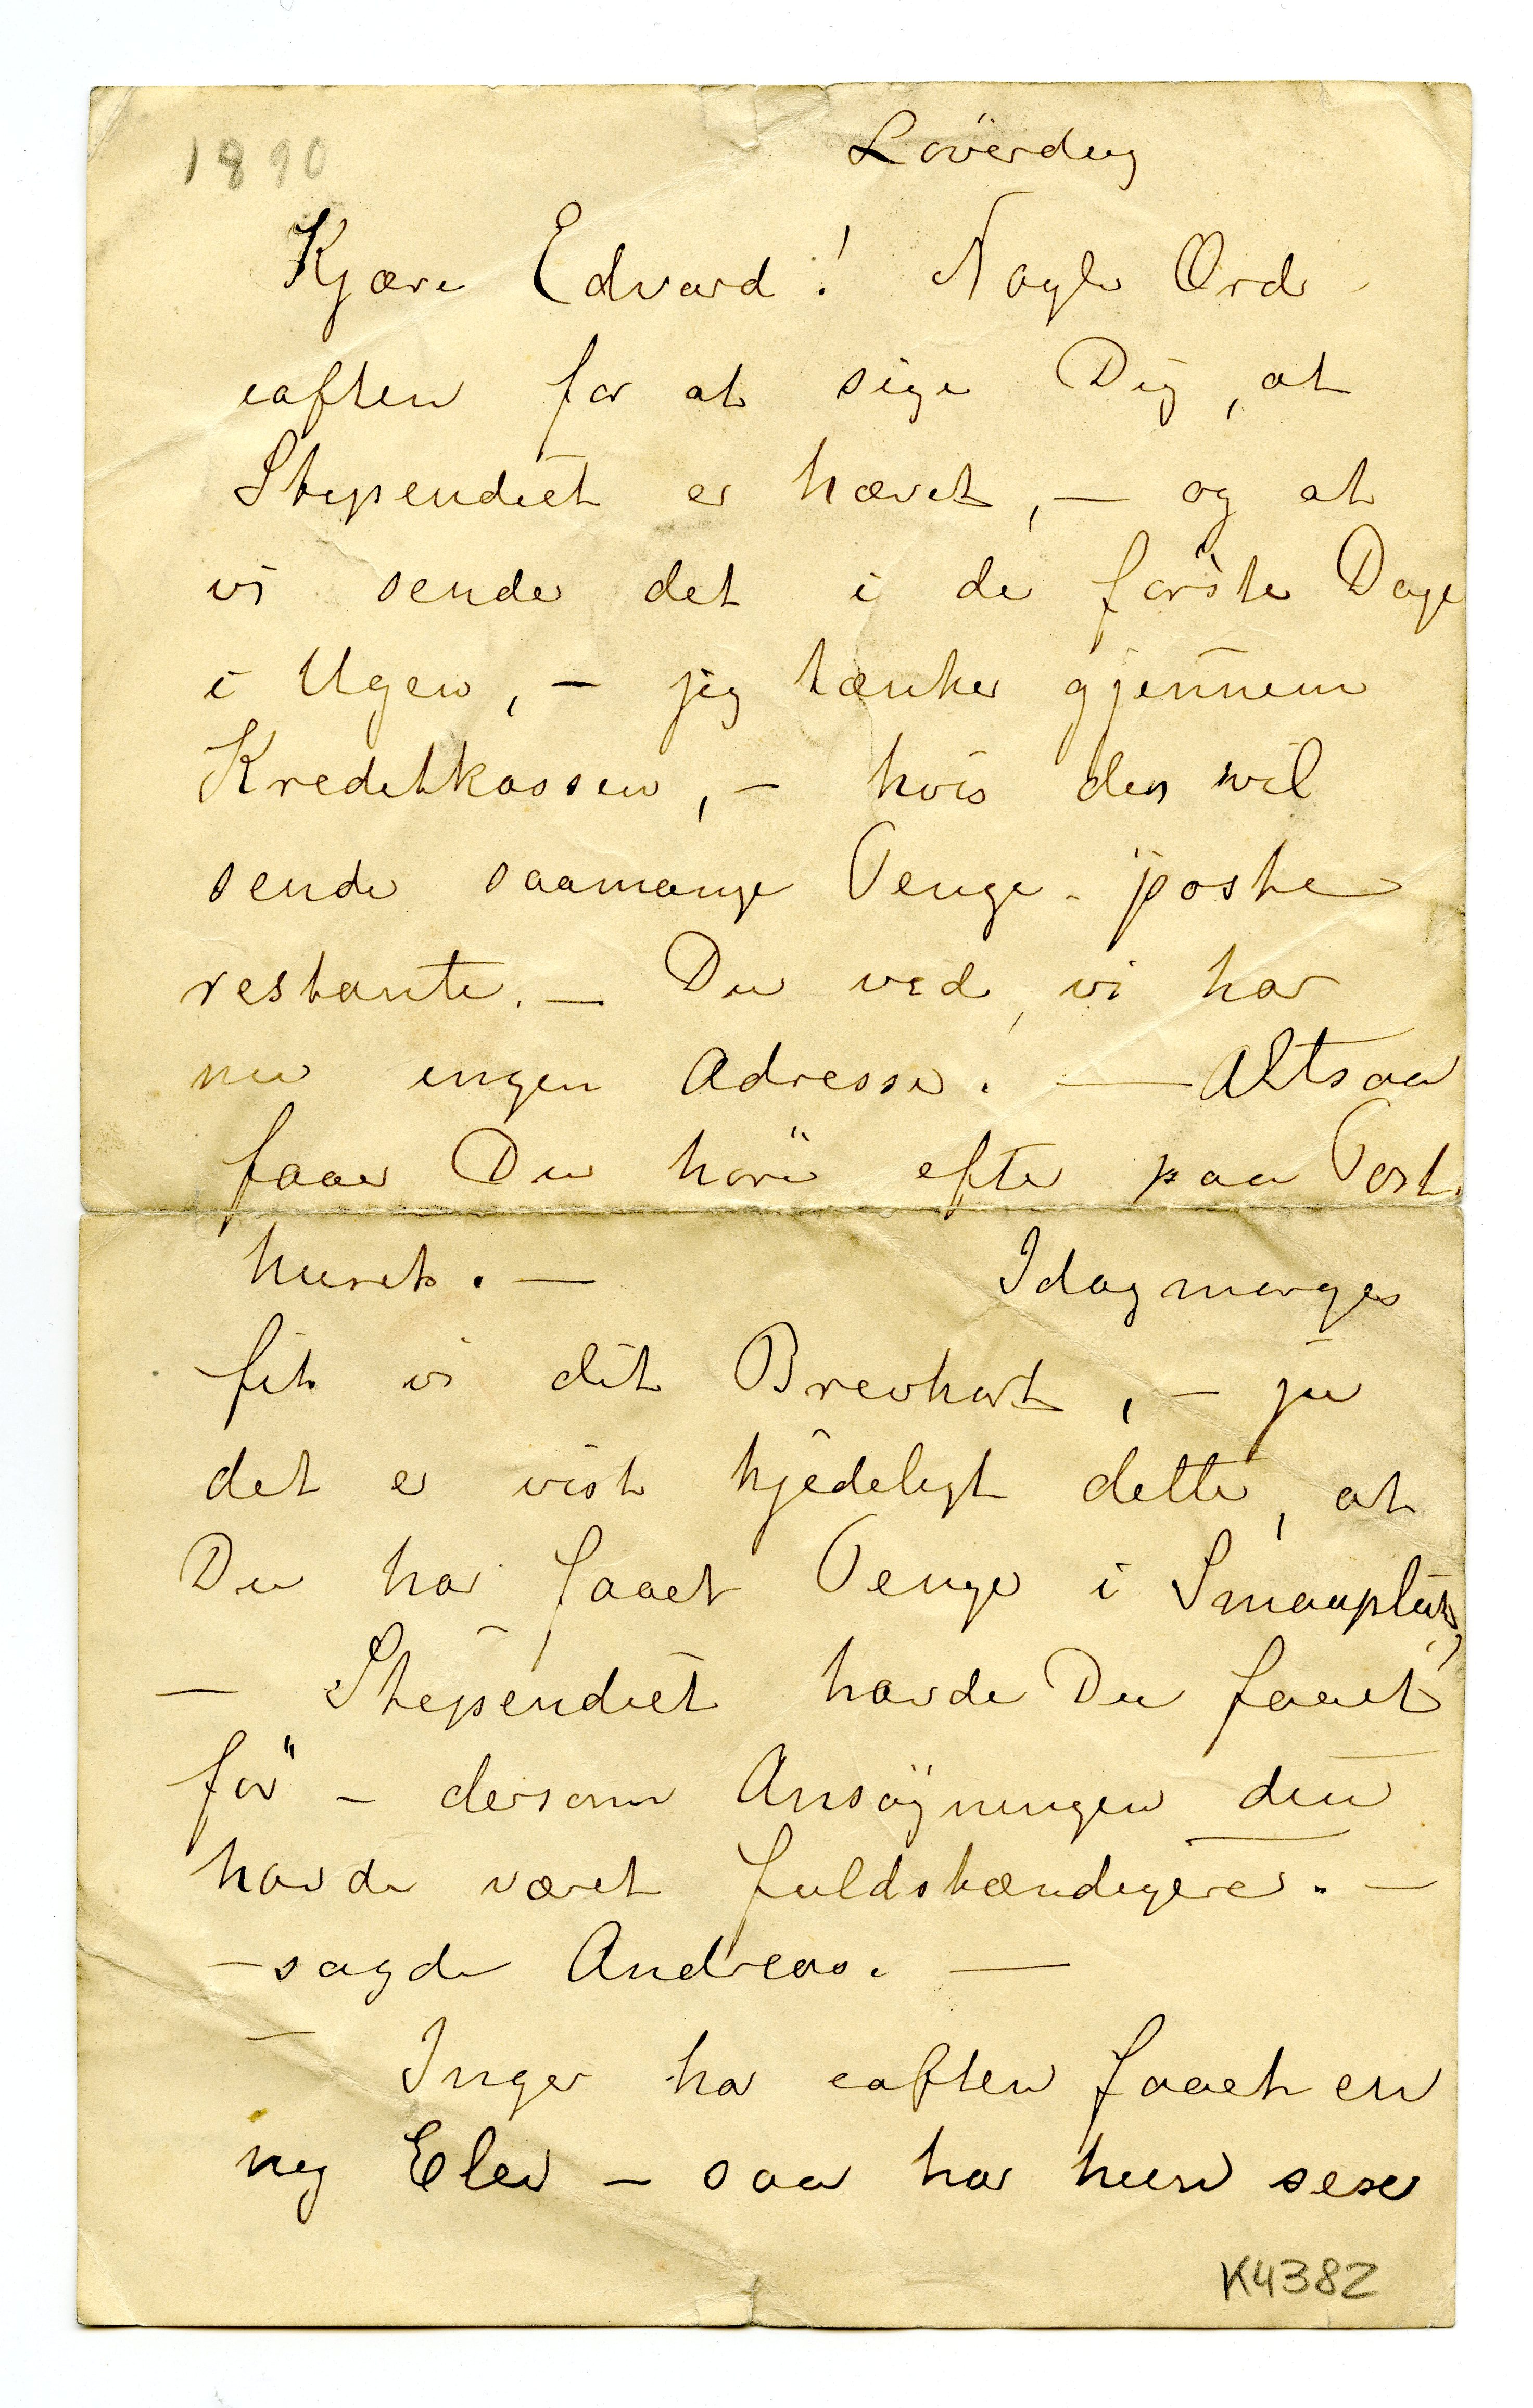 1890
Löverdag
Kjære Edvard! Nogle Ord
iaften for at sige Dig, at
Stipendiet er hævet, – og at
vi sende det i de förste Dage
i Ugen, – jeg tænker gjennem
Kreditkassen, – hvis den vil
sende saamange Penge – poste
restante. – Du ved, vi har
nu ingen Adresse. — Altsaa
faar Du höre efter paa Post-
huset. — Idagmorges
fik vi dit Brevkort, – ja
det er vist kjedeligt dette, at
Du har faaet Penge i Smaapluk,
– Stipendiet havde Du faaet
för – dersom Ansögningen din
havde været fuldstændigere. –
– sagde Andreas. —
– Inger har iaften faaet en
ny Elev – saa har hun sex
K4382